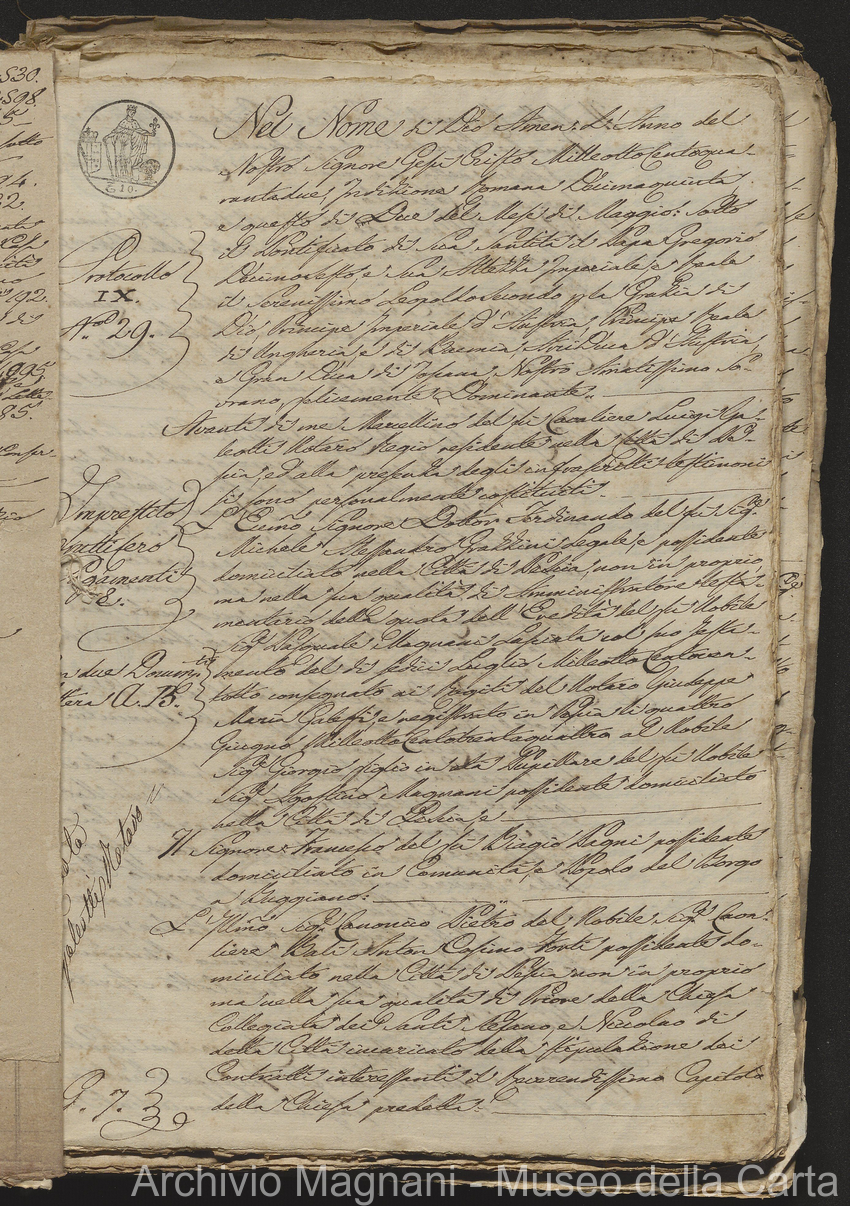 530.
598.
C. 10.
Protocollo
IX.
N.º 29.
Imprestito
fruttifero
Pagamenti
8.
due Docum.ti
A. B.
Notaro
G. 7.
Nel Nome di Dio Amen: L'Anno del
Nostro Signore Gesù Cristo Milleotto Centoqua-
rantadue, Indizione Romana Decimaquinta,
e questo dì Due del Mese di Maggio: Sotto
il Pontificato di Sua Santità il Papa Gregorio
Decimosesto, e Sua Altezza Imperiale, e Reale
il Serenissimo Leopoldo Secondo p. la Grazia di
Dio Principe Imperiale d'Austria, Principe Reale
di Ungheria, e di Boemia, Arciduca d'Austria,
e Gran Duca di Toscana, Nostro Amatissimo So-
vrano, felicemente Dominante.
Avanti di me Marcellino del fù Cavaliere Luigi Ga-
leotti Notaro Regio residente nella Città di Pe-
scia, ed alla presenza degli infrascritti testimoni
si sono personalmente costituiti.
L'Ecc.mo Signore Dottor Ferdinando del fù Sig.re
Michele Alessandro Graddini Legale, e possidente
domiciliato nella Città di Pescia, non in proprio
ma nella sua qualità di Amministratore testa-
mentario della quota dell'Eredità del fù Nobile
Sig.r Pasquale Magnani lasciata col suo testa-
mento del dì sedici Luglio Milleotto Centoven-
totto consegnato ai Rogiti del Notaro Giuseppe
Maria e registrato in Pescia li quattro
Giugno Milleotto Centotrentaquattro al Nobile
Sig.r Giorgio figlio in età Pupillare del fù Nobile
Sig.r Agostino Magnani possidente domiciliato
nella Città di Pescia, e
Il Signore Francesco del fù Biagio Pagni possidente
domiciliato in Comunità, e Popolo del Borgo
a Buggiano:
L'Ill.mo Sig.r Canonico Pietro del Nobile Sig.r Cava-
liere Balì Anton Cosimo Forti possidente do-
miciliato nella Città di Pescia non in proprio
ma nella sua qualità di Priore della Chiesa
Collegiata dei Santi Stefano, e Niccolao di
detta Città incaricato della stipulazione dei
Contratti interessanti il Reverendissimo Capitolo
della Chiesa predetta.
Archivio Magnani - Museo della Carta